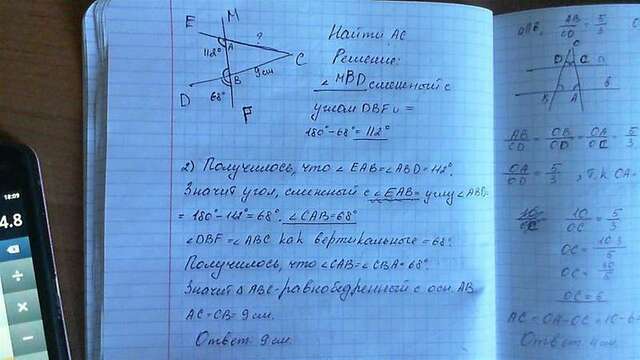 M
E
Найти AC
?
112°
A
Решение:
C
B
9 см
∠MBD смежный с
D
68°
углом DBF и =
F
180°-68°=112°
2) Получилось, что ∠EAB=∠ABD=112°.
Значит угол, смежный с ∠EAB= углу ∠ABD=
=180°-112°=68°. ∠CAB=68°
∠DBF=∠ABC как вертикальные =68°.
Получилось, что ∠CAB=∠CBA=68°.
Значит Δ ABC-равнобедренный с осн. AB.
AC=CB=9 см.
Ответ 9 см.
AB/CD = 5/3
C
D
C
a
B
A
b
AB/CD = OB/OD = OA/OC = 5/3
OA/OC = 5/3, т.к OA-
10/OC = 5/3
OC = 10·3/5
OC = 30/5
OC = 6
AC = OA-OC = 10-6
Ответ 4 см.
18:09
4.8
÷
×
−